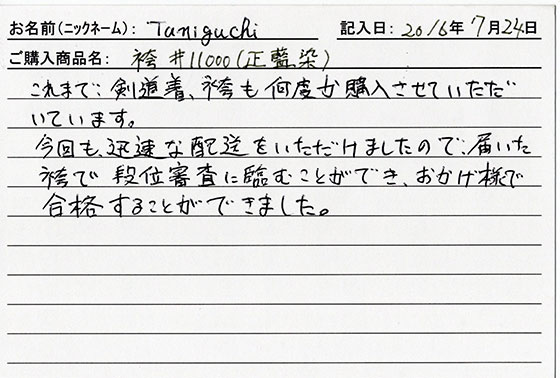 お名前(ニックネーム): Taniguchi 記入日: 2016年 7月24日
ご購入商品名: 袴 #11000(正藍染)
これまで、剣道着、袴も何度か購入させていただ
いています。
今回も、迅速な配送をいただけましたので、届いた
袴で段位審査に臨むことができ、おかげ様で
合格することができました。